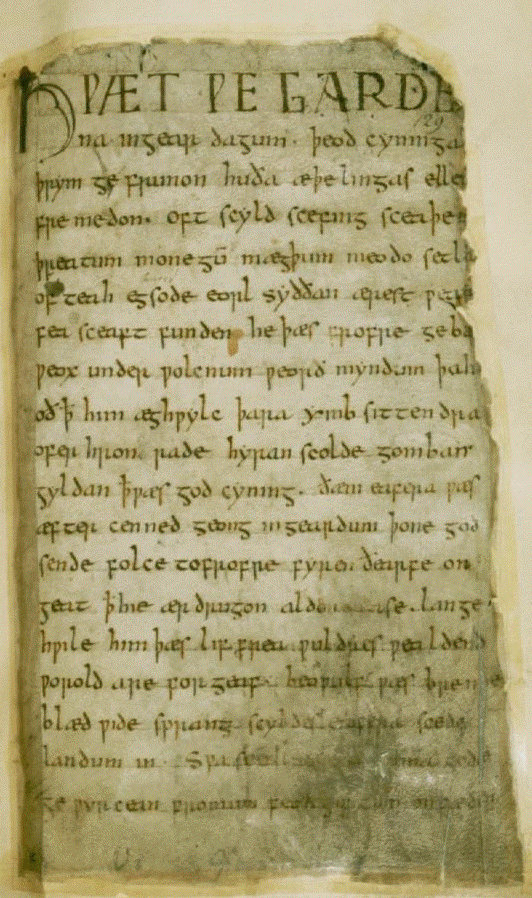 HǷÆT ǷE GARDE
129
na ingear dagum. þeod cyninga
þrym ge frunon huða æþelingas elle
fremedon. oft scyld scefing sceaþe
þreatum monegū mægþum meodo setla
of teah egsode eorl syððan ærest
fea sceaft funden he þæs frofre geba
ƿeox under ƿolcnum ƿeorð myndum þah
oð ꝥ him æghƿylc þara ymb sittendra
ofer hron rade hyran scolde gomban
gyldan ꝥ ƿæs god cyning. ðæm eafera ƿæs
æfter cenned geong ingeardum þone god
sende folce tofrofre fyren ðearfe on
geat ꝥ hie ær drugon lange
hƿile him þæs lif frea ƿuldres ƿealdend
ƿorold are for geaf. beoƿulf ƿæs breme
blæd ƿide sprang scyldes eafera scede
landum in. Sƿa gode
ge ƿyrcean fromum